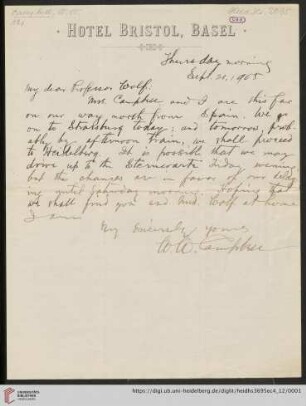 HOTEL BRISTOL, BASEL
Thursday morning
Sept. 21, 1905
My dear Professor Wolf:
Mrs. Campbell and I are this far
on our way north from Spain. We go
on to Strassburg today; and tomorrow, prob-
ably by afternoon train, we shall proceed
to Heidelberg. It is possible that we may
drive up to the Sternwarte Friday evening,
but the chances are in favor of our delay-
ing until Saturday morning. Hoping that
we shall find you and Mrs. Wolf at home
I am
Very Sincerely yours
W. W. Campbell
UNIVERSITÄTS-
BIBLIOTHEK
HEIDELBERG
https://digi.ub.uni-heidelberg.de/diglit/heidhs3695ec4_12/0001